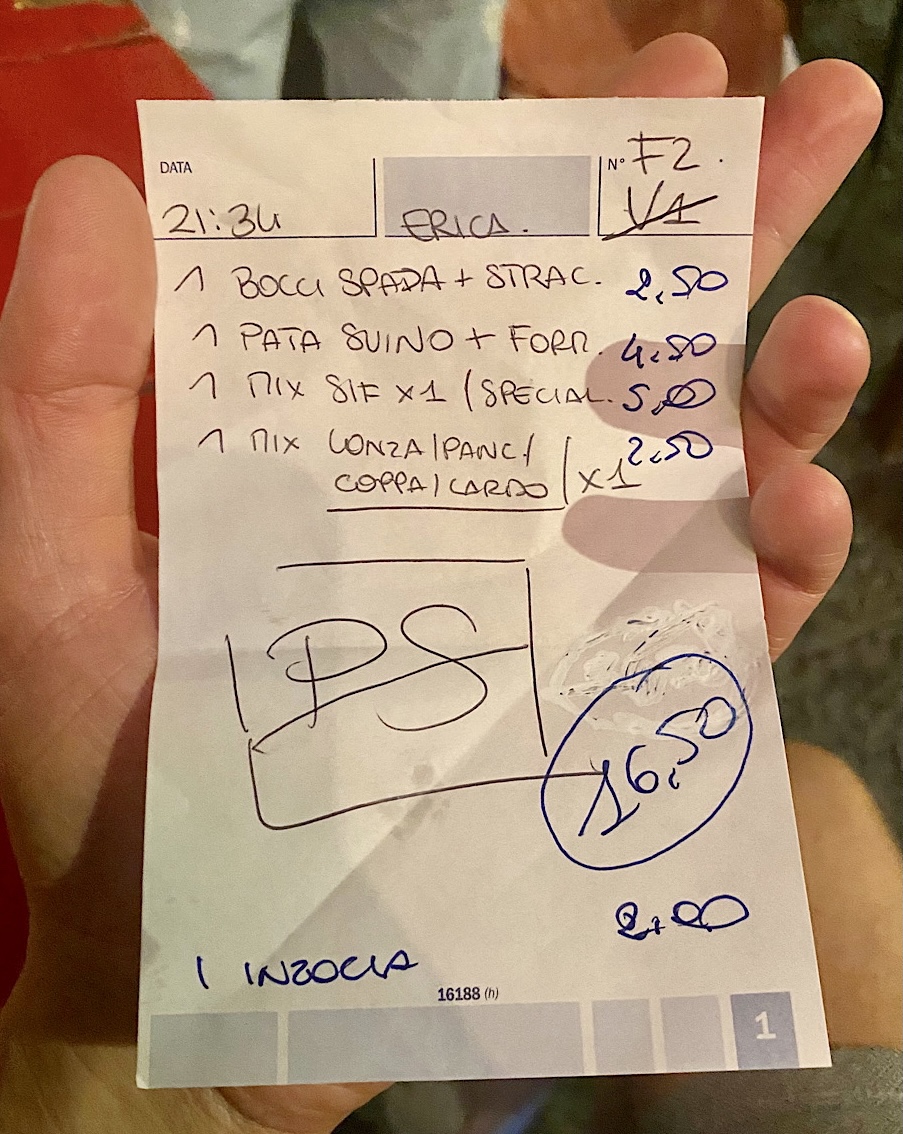 DATA
N° F2.
21:34 ERICA. V1
1 BOCCI SPADA + STRAC. 2,50
1 PATA SUINO + FORM. 4,50
1 MIX SIF X1 / SPECIAL. 5,00
1 MIX LONZA/PANC/ 2,50
COPPA/CARDO / X1
PS
16,50
2,00
1 INZOLIA
16188 (h)
1